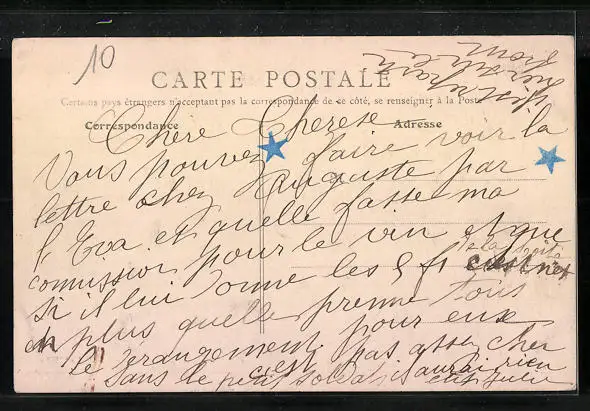 10
CARTE POSTALE
Certains pays étrangers n'acceptant pas la correspondance de ce côté, se renseigner à la Poste
Correspondance
Adresse
Chère Therese
Vous pouvez faire voir la
lettre chez Auguste par
l'Eva et quelle fasse ma
comission pour le vin et que
si il lui donne les 5 f1
en plus quelle prenne tous
le derangement pour eux
c'est pas assez cher
sans le petit soldat il aurai rien